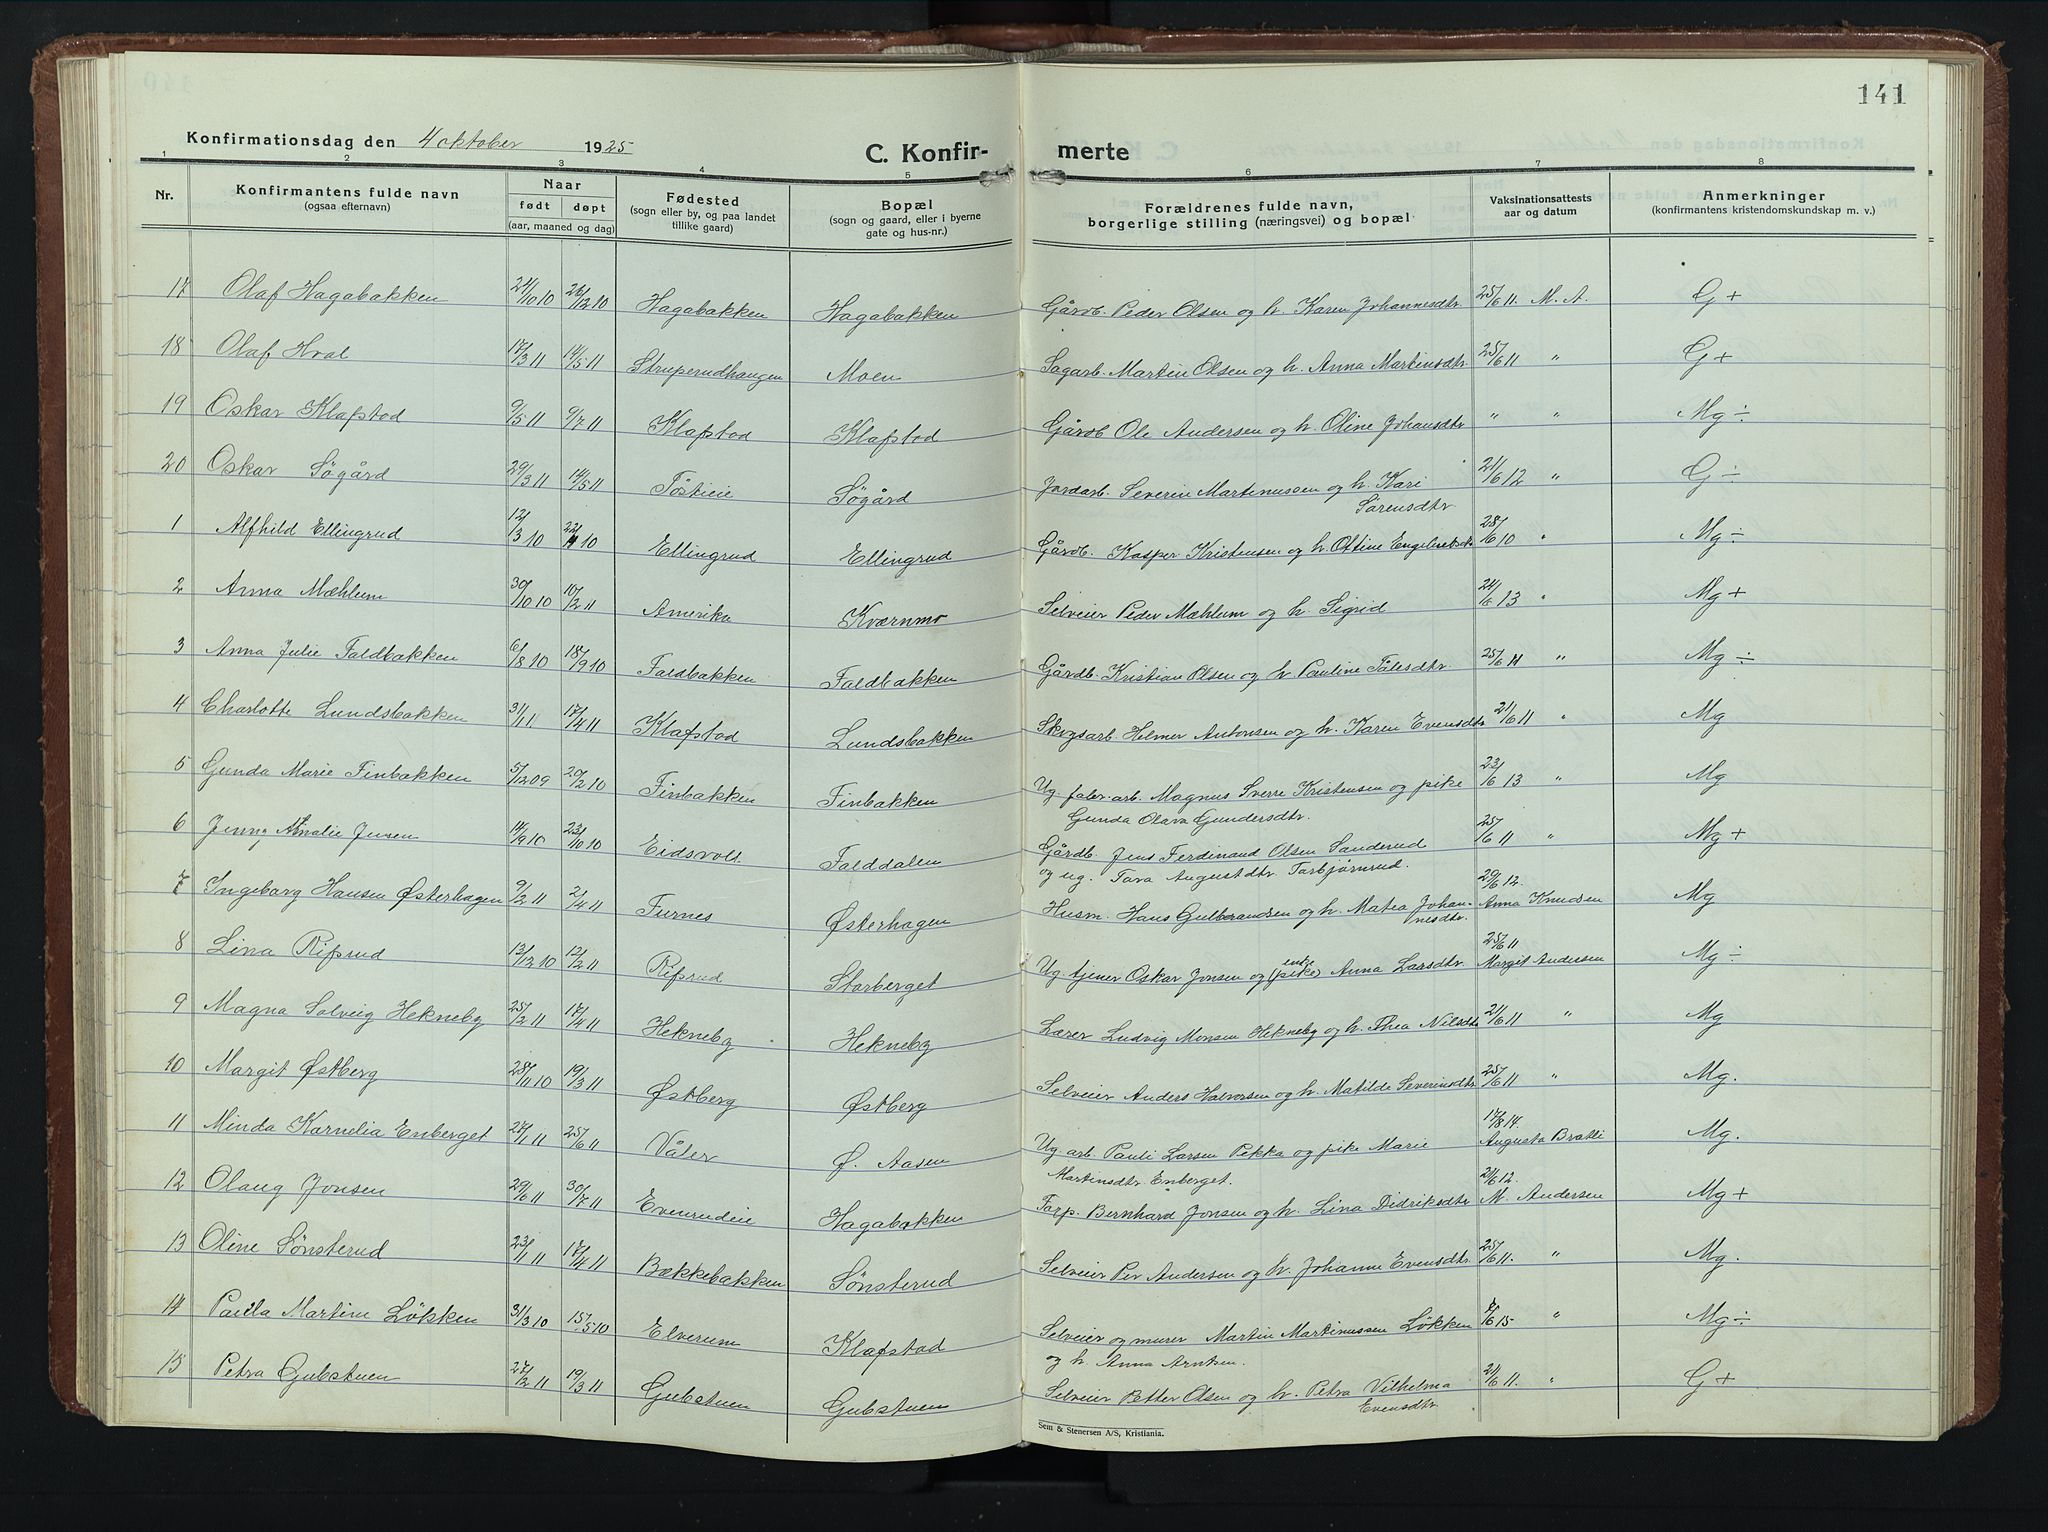 141
Konfirmationsdag den 4 oktober 1925
C. Konfir- merte
1 2 3 4 5 6 7 8
Nr. Konfirmantens fulde navn (ogsaa efternavn) Naar født døpt (aar, maaned og dag) Fødested (sogn eller by, og paa landet tillike gaard) Bopæl (sogn og gaard, eller i byerne gate og hus-nr.) Forældrenes fulde navn, borgerlige stilling (næringsvei) og bopæl Vaksinationsattests aar og datum Anmerkninger (konfirmantens kristendomskundskap m. v.)
17 Olaf Hagabakken 24/10 10 26/12 10 Hagabakken Hagabakken Gårdb. Peder Olsen og h. Karen Johannesdtr. 25/6 11. M. A. G +
18 Olaf Hval 17/3 11 14/5 11 Struperudhaugen Moen Sagarb. Martin Olsen og h. Anna Martinsdtr 25/6 11 " G +
19 Oskar Klafstad 9/5 11 9/7 11 Klafstad Klafstad Gårdb Ole Andersen og h. Oline Johansdtr " " Mg ÷
20 Oskar Søgård 29/3 11 14/5 11 Søgård Jordarb. Severin Martinussen og h. Kari 21/6 12 " G ÷
Sørensdtr
1 Alfhild Ellingrud 12/3 10 10 Ellingrud Ellingrud Gårdb. Kasper Kristensen og h. Ottine 28/6 10 " Mg ÷
2 Anna Mæhlum 30/10 10 10/2 11 Amerika Kværnmo Selveier Peder Mæhlum og h. Sigrid 24/6 13 " Mg +
3 Anna Julie Faldbakken 6/8 10 18/9 10 Faldbakken Faldbakken Gårdb. Kristian Olsen og h Pauline Tålesdtr 25/6 11 " Mg ÷
4 Charlotte Lundsbakken 31/1 11 17/4 11 Klafstad Lundsbakken Skogsarb. Helmer Antonsen og h. Karen Evensdtr 21/6 11 " Mg
5 Gunda Marie Finbakken 5/12 09 20/2 10 Finbakken Finbakken Ug. fabr. arb. Magnus Sverre Kristensen og pike 23/6 13 " Mg
Gunda Olava Gundersdtr.
6 Jenny Amalie Jensen 14/9 10 23/10 10 Eidsvoll Falddalen Gårdb. Jens Ferdinand Olsen Sanderud 25/6 11 " Mg +
og ug. Tora Augustdtr Torbjørnrud.
7 Ingeborg Hansen Østerhagen 9/2 11 2/4 11 Furnes Østerhagen Husm. Hans Gulbrandsen og h. Matea Johan- 29/6 12. Anna Knudsen Mg
nesdtr.
8 Lina Rifsrud 13/12 10 12/2 11 Rifsrud Storberget Ug. tjener Oskar Jonsen og (pike) enke Anna Larsdtr 25/6 11 Margit Andersen Mg ÷
9 Magna Solveig Hekneby 25/2 11 17/4 11 Hekneby Hekneby Lærer Ludvig Monsen Hekneby og h. Thea Nilsdtr 21/6 11 " Mg
10 Margit Østberg 28/11 10 19/3 11 Østberg Østberg Selveier Anders Halvorsen og h. Matilde Severinsdtr 25/6 11 " Mg.
11 Minda Kornelia Enberget 27/1 11 25/6 11 Våler Ø. Aasen Ug arb. Pauli Larsen Pekka og pike Marie 17/8 14. Augusta Bratli Mg.
Martinsdtr. Enberget.
12 Olaug Jonsen 29/6 11 30/7 11 Evenrudeie Hagabakken Torp. Bernhard Jonsen og h. Lina Didriksdtr 21/6 12. M. Andersen Mg +
13 Oline Sønsterud 23/1 11 17/4 11 Bækkebakken Sønsterud Selveier Per Andersen og h. Johanne Evensdtr. 25/6 11. " Mg.
14 Paula Martine Løkken 31/3 10 15/5 10 Elverum Klafstad Selveier og murer Martin Martinussen Løkken 6 15 " Mg ÷
og h. Anna Arntsen.
15 Petra Gubstuen 27/2 11 19/3 11 Gubstuen Gubstuen Selveier Petter Olsen og h. Petra Vilhelma 21/6 11. " G +
Evensdtr
Sem & Stenersen A/S, Kristiania.